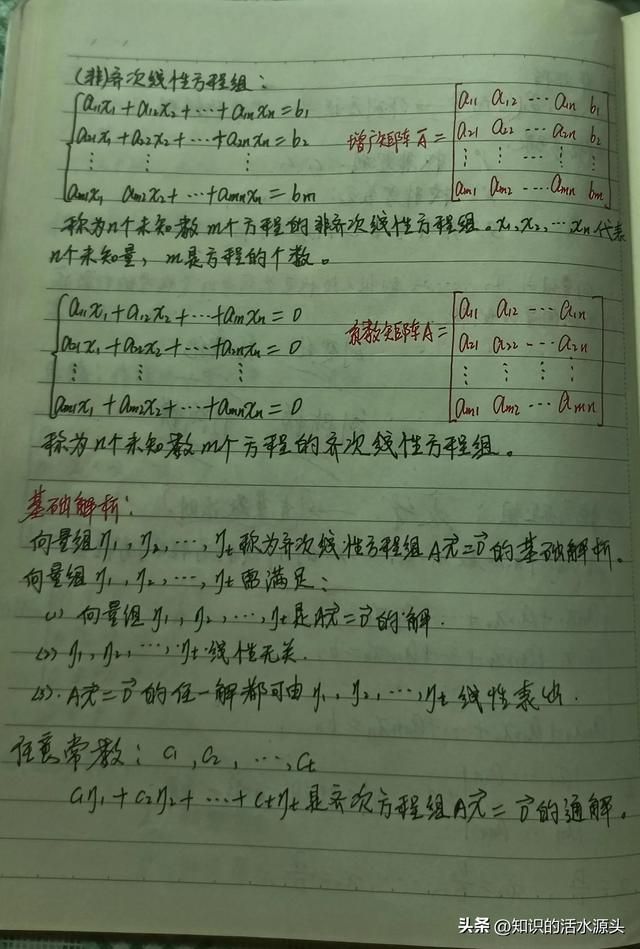 (非)齐次线性方程组：
a₁₁x₁+a₁₂x₂+⋯+a₁ₙxₙ=b₁
a₂₁x₁+a₂₂x₂+⋯+a₂ₙxₙ=b₂
⋮ ⋮ ⋮
aₘ₁x₁ aₘ₂x₂+⋯+aₘₙxₙ=bₘ
增广矩阵Ā=
a₁₁ a₁₂ ⋯ a₁ₙ b₁
a₂₁ a₂₂ ⋯ a₂ₙ b₂
⋮ ⋮ ⋯ ⋮ ⋮
aₘ₁ aₘ₂ ⋯ aₘₙ bₘ
称为n个未知数m个方程的非齐次线性方程组。x₁,x₂,⋯xₙ代表
n个未知量，m是方程的个数。
a₁₁x₁+a₁₂x₂+⋯+a₁ₙxₙ=0
a₂₁x₁+a₂₂x₂+⋯+a₂ₙxₙ=0
⋮ ⋮ ⋮
aₘ₁x₁+aₘ₂x₂+⋯+aₘₙxₙ=0
系数矩阵A=
a₁₁ a₁₂ ⋯ a₁ₙ
a₂₁ a₂₂ ⋯ a₂ₙ
⋮ ⋮ ⋮ ⋮
aₘ₁ aₘ₂ ⋯ aₘₙ
称为n个未知数m个方程的齐次线性方程组。
基础解析：
向量组η₁,η₂,⋯,ηt称为齐次线性方程组Ax⃗=0⃗的基础解析。
向量组η₁,η₂,⋯,ηt需满足：
(1) 向量组η₁,η₂,⋯,ηt是Ax⃗=0⃗的解.
(2) η₁,η₂,⋯,ηt线性无关.
(3). Ax⃗=0⃗的任一解都可由η₁,η₂,⋯,ηt线性表出.
任意常数：c₁,c₂,⋯,ct
c₁η₁+c₂η₂+⋯+ctηt是齐次方程组Ax⃗=0⃗的通解。
头条 @知识的活水源头